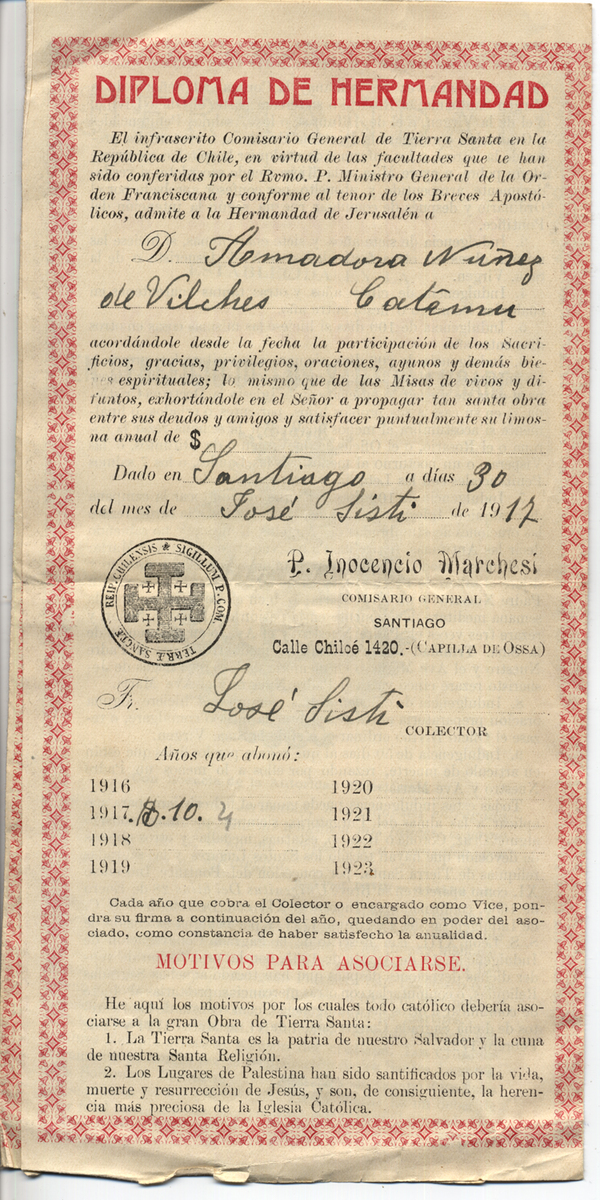 DIPLOMA DE HERMANDAD
El infrascrito Comisario General de Tierra Santa en la
República de Chile, en virtud de las facultades que le han
sido conferidas por el Rvmo. P. Ministro General de la Or-
den Franciscana y conforme al tenor de los Breves Apostó-
licos, admite a la Hermandad de Jerusalén a
D. Amadora Núñez
de Vilches Catému
acordándole desde la fecha la participación de los Sacri-
ficios, gracias, privilegios, oraciones, ayunos y demás bie-
nes espirituales; lo mismo que de las Misas de vivos y di-
funtos, exhortándole en el Señor a propagar tan santa obra
entre sus deudos y amigos y satisfacer puntualmente su limos-
na anual de $
Dado en Santiago a días 30
del mes de José Sisti de 1917
REIP. CHILENSIS ★ SIGILLUM P. COM. TERRÆ SANCTÆ
P. Inocencio Marchesi
COMISARIO GENERAL
SANTIAGO
Calle Chiloé 1420.-(CAPILLA DE OSSA)
Fr. José Sisti
COLECTOR
Años que abonó:
1916 1920
1917. $.10. 1921
1918 1922
1919 1923
Cada año que cobra el Colector o encargado como Vice, pon-
dra su firma a continuación del año, quedando en poder del aso-
ciado, como constancia de haber satisfecho la anualidad.
MOTIVOS PARA ASOCIARSE.
He aquí los motivos por los cuales todo católico debería aso-
ciarse a la gran Obra de Tierra Santa:
1. La Tierra Santa es la patria de nuestro Salvador y la cuna
de nuestra Santa Religión.
2. Los Lugares de Palestina han sido santificados por la vida,
muerte y resurrección de Jesús, y son, de consiguiente, la heren-
cia más preciosa de la Iglesia Católica.